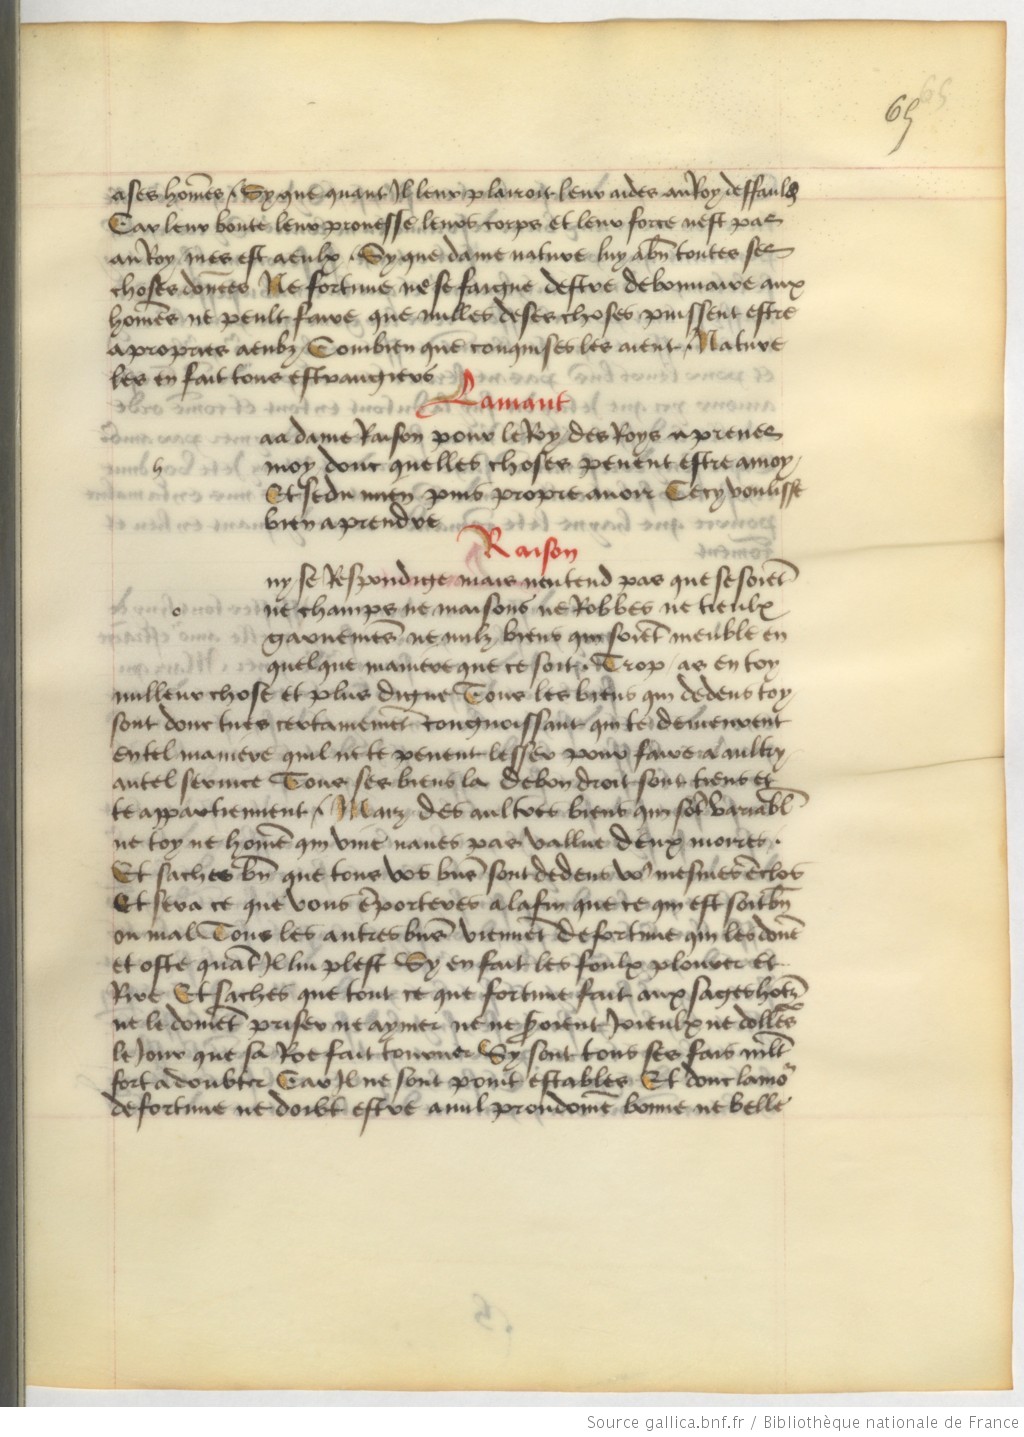 65
65
ases hom̄es / Sy que quant Il leur plairoit leur aides au Roy deffauldr
Car leur bonte leur prouesse leurs corps et leur force nest pas
au Roy mes est aeulx . Sy que dame nature luy a bn̄ toutes ses
choses donees Ne fortune ne se faigne destre debonnaire aux
hom̄es ne peult faire que nulles de ses choses puissent estre
apropries aeulz Combien que conquises les aient . Nature
les en fait tous estrangiers
Lamant
aa dame Raison pour le Roy des Roys aprenes
h
moy donc quelles choses peuent estre a moy /
Et se du mien puis propre auoir Cecy voulisse
bien aprendre
Raison
ny se Respondige mais nentend pas que se soiēt
o
ne champs ne maisons ne Robbes ne tieulx
garnemēs ne nulz biens qui soiēt meuble en
quelque maniere que ce soit . Trop as en toy
milleur chose et plus digne Tous les biens qui dedens toy
sont donc tues certainemēt Congnoissant qui te demeurent
en tel maniere quil ne te peuent lesser pour faire a aultry
autel seruice Tous ses biens la de bon droit sont tiens et
te appartiennent / Maiz des aultres biens qui sōt variabl̄
ne toy ne hom̄e qui viue naues pas vallue deux mores .
Et saches bn̄ que tous vos biēs sont dedens vo9 mesmes ēclos
Et sera ce que vous ēporteres a la fin que ce qui est soit bn̄
ou mal Tous les autres biēs viennēt de fortune qui les donē
et oste quāt Il lui plest Sy en fait les foulx plourer et
Rire Et saches que tout ce que fortune fait aux sages hom̄
ne le doiuēt priser ne aymer ne ne soient Joieulx ne dollēs
le Jour que sa Roe fait tourner Sy sont tous ses fais ml̄t
fort a doubter Car Il ne sont point estables Et donc lamo᷑
de fortune ne doibt estre a nul preudom̄e bonne ne belle
Source gallica.bnf.fr / Bibliothèque nationale de France